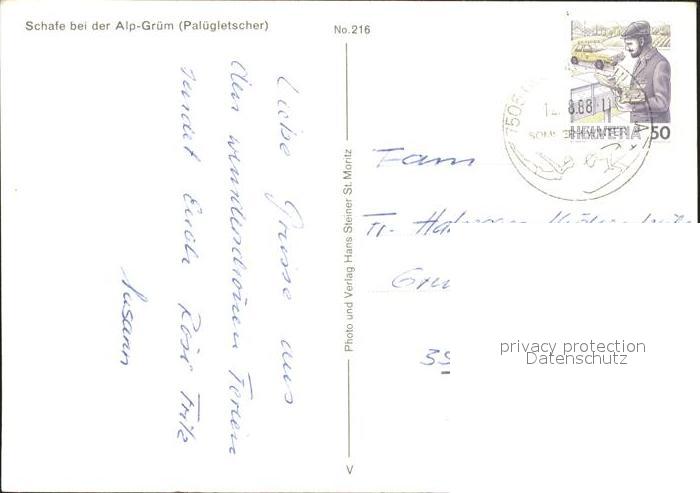 Schafe bei der Alp-Grüm (Palügletscher)
No. 216
Liebe Grüsse aus
den wunderschönen Ferien
sendet Euch Rösi Fritz
Susann
Photo und Verlag Hans Steiner St. Moritz
V
HELVETIA 50
8.88
Fam
Fr.
39
privacy protection
Datenschutz